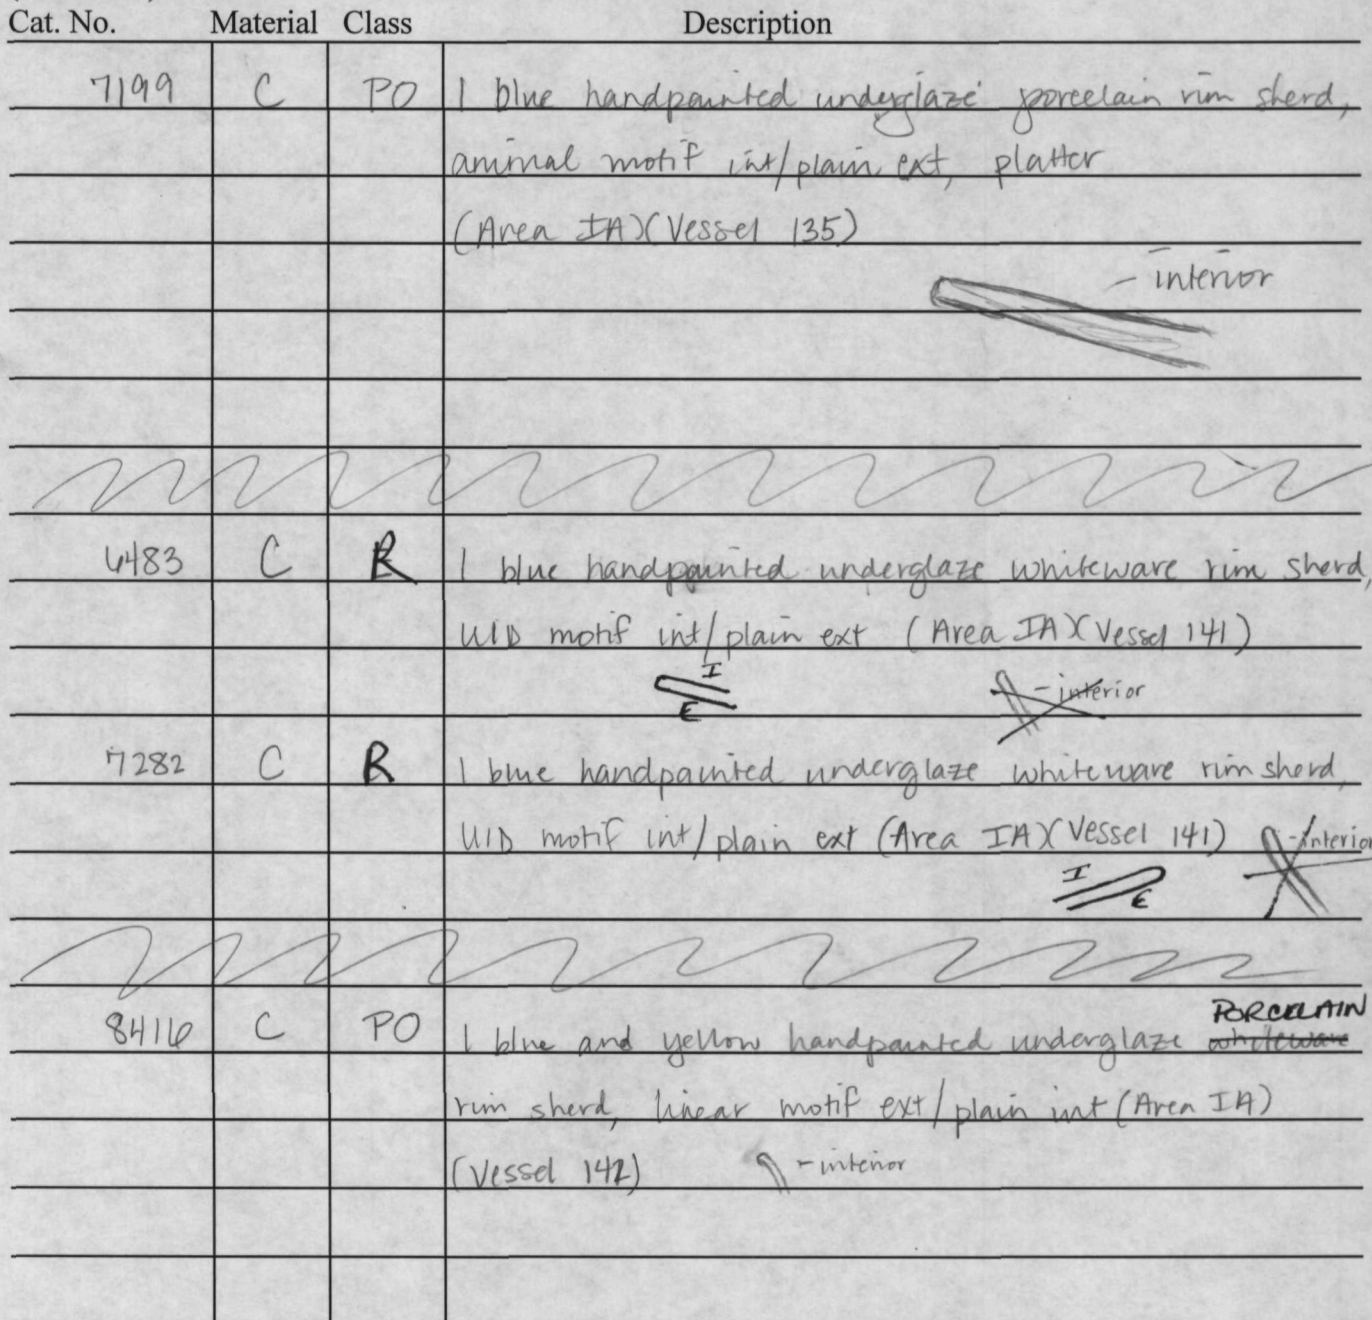 Cat. No. Material Class Description
7199 C PO 1 blue handpainted underglaze porcelain rim sherd,
animal motif int/plain ext, platter
(Area IA)(Vessel 135)
- interior
6483 C R 1 blue handpainted underglaze whiteware rim sherd,
UID motif int/plain ext (Area IA)(Vessel 141)
I
E
- interior
7282 C R 1 blue handpainted underglaze whiteware rim sherd,
UID motif int/plain ext (Area IA)(Vessel 141)
- interior
I
E
PORCELAIN
8416 C PO 1 blue and yellow handpainted underglaze whiteware
rim sherd, linear motif ext/plain int (Area IA)
(Vessel 142) - interior